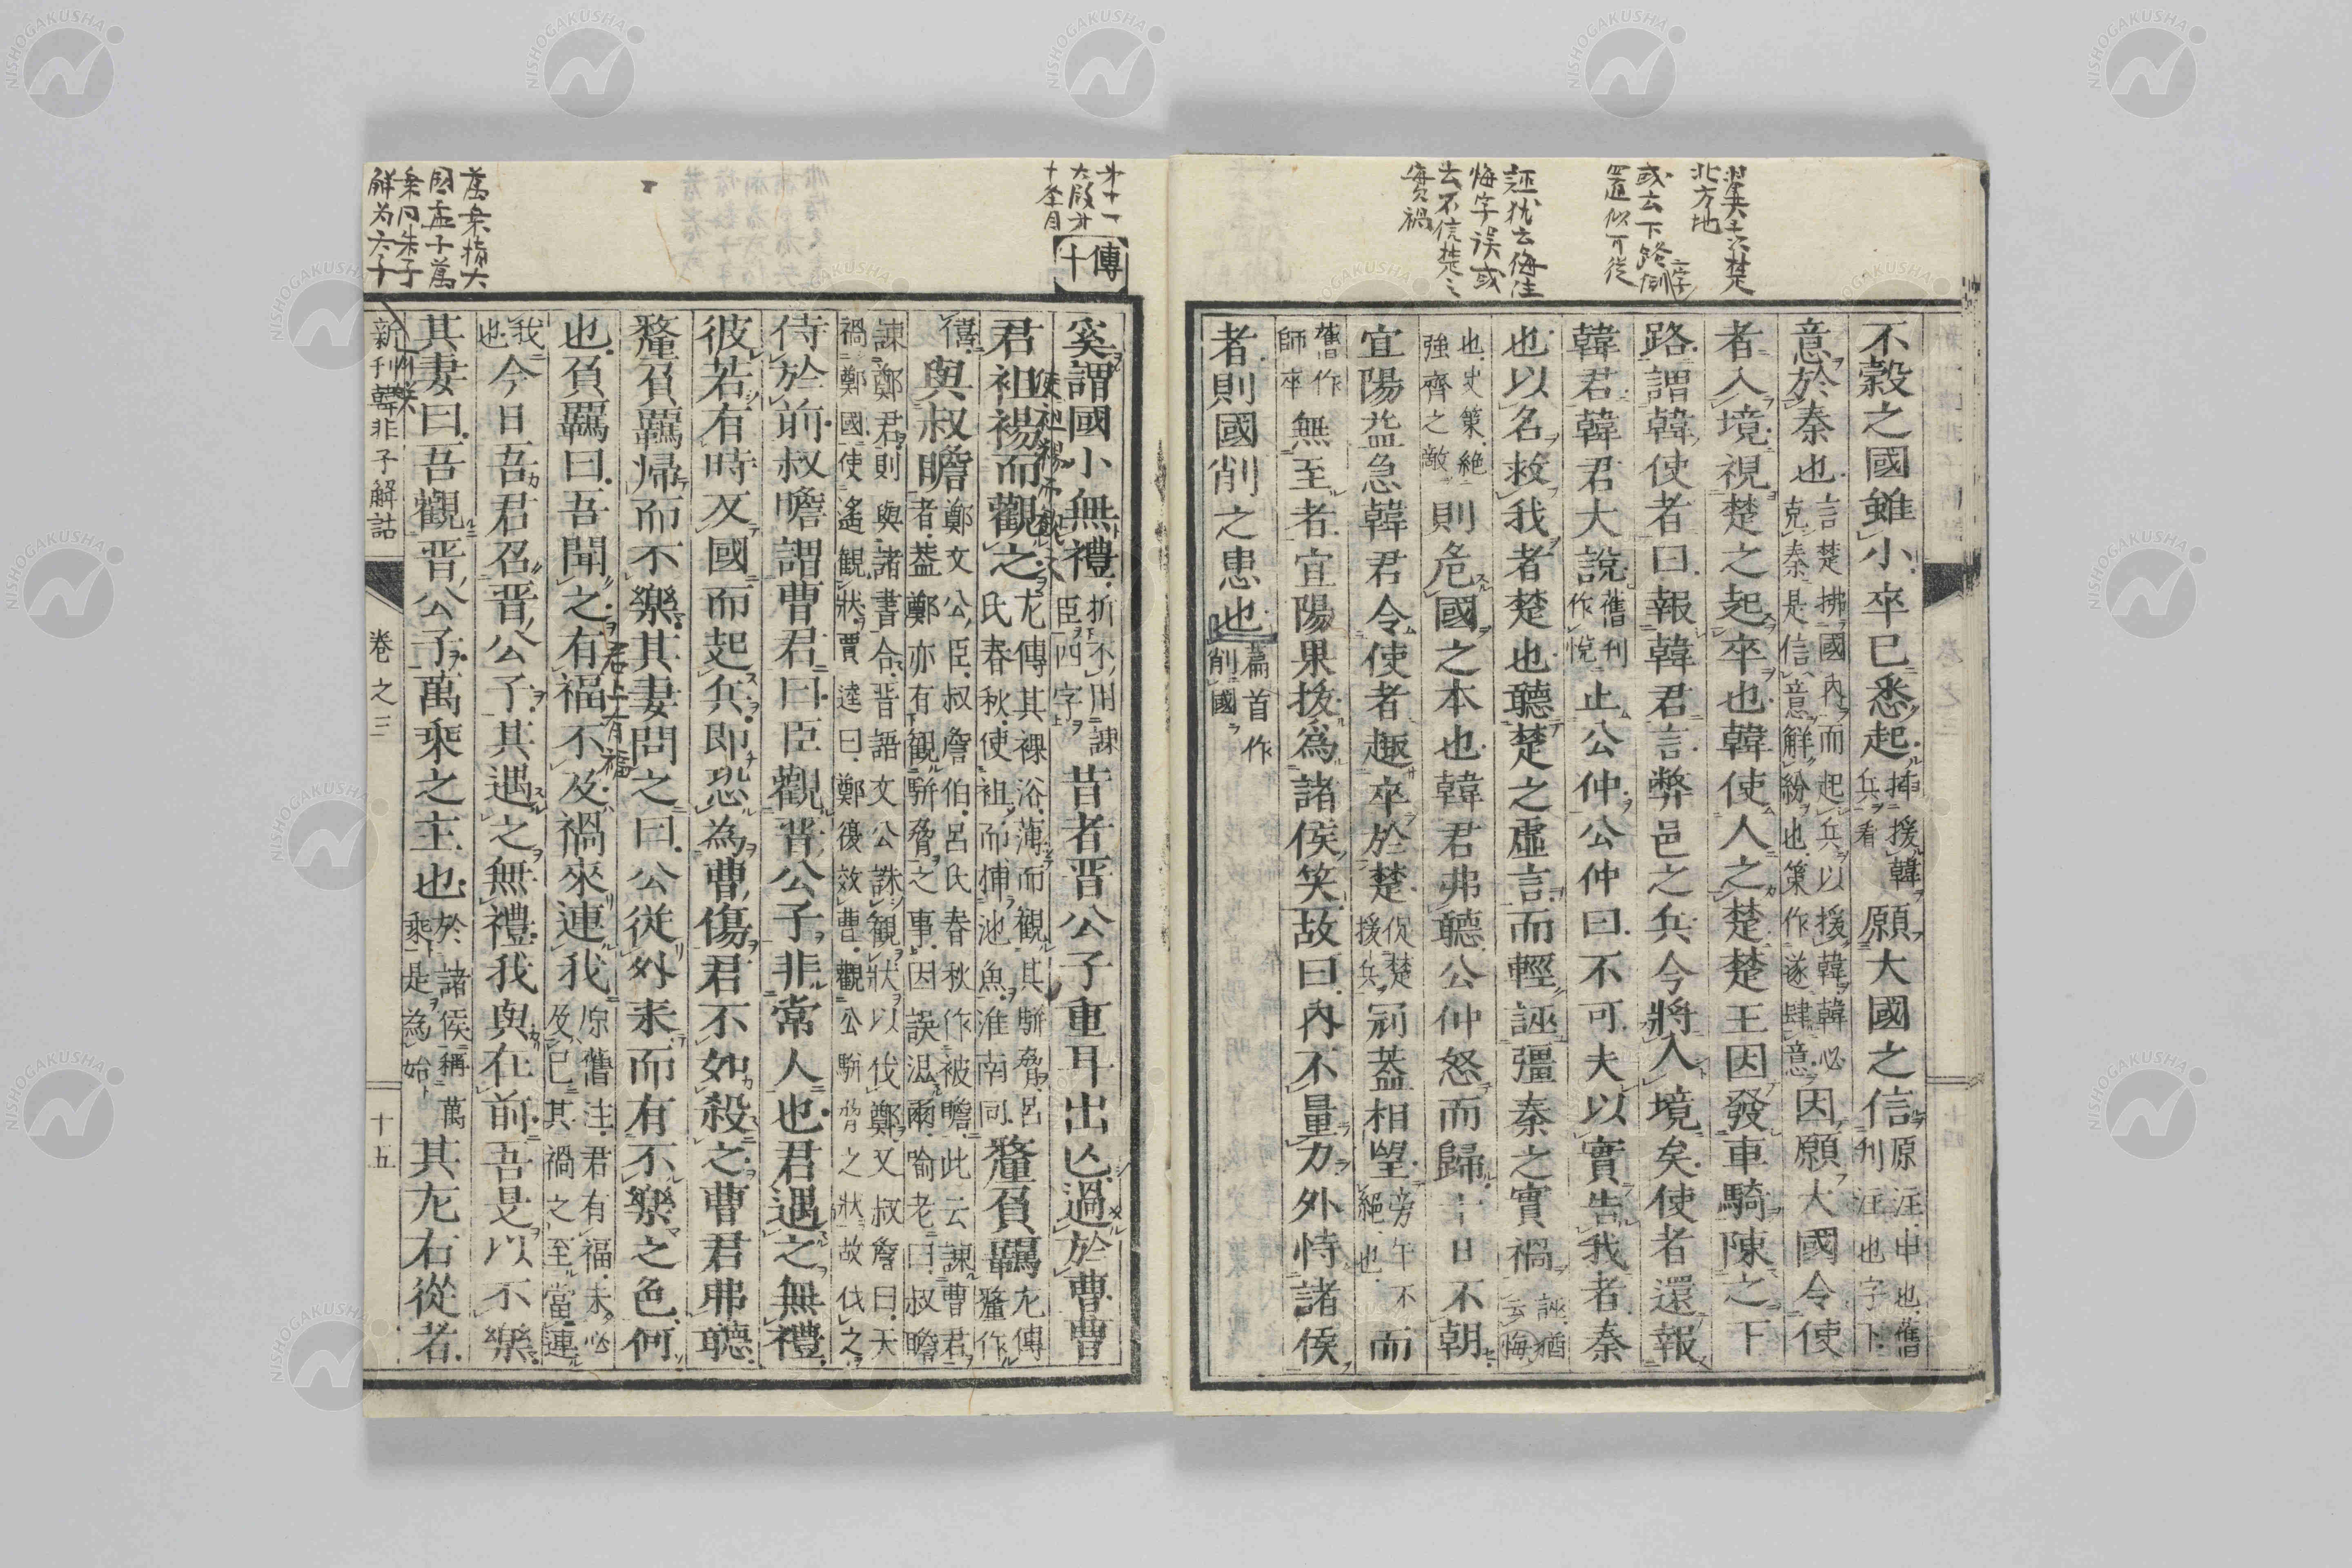 不穀之國雖小卒已悉起揷援韓兵看願大國之信原注申也舊刊注也字下
意於秦也言楚拂國內而起兵以援韓韓必克秦是信意解紛也策作遂肆意因願大國令使
者入境視楚之起卒也韓使人之楚楚王因發車騎陳之下
路謂韓使者曰報韓君言弊邑之兵今將入境矣使者還報
韓君韓君大說舊刊作悅止公仲公仲曰不可夫以實告我者秦
也以名救我者楚也聽楚之虛言而輕誣彊秦之實禍誣猶云悔
也史策絕強齊之敵則危國之本也韓君弗聽公仲怒而歸十日不朝
宜陽益急韓君令使者趣卒於楚促楚援兵冠蓋相望旁午不絕也而
舊作師卒無至者宜陽果拔爲諸侯笑故曰內不量力外恃諸侯
者則國削之患也篇首作削國
傳十
奚謂國小無禮折不用諫臣四字昔者晋公子重耳出亡過於曹曹
君袒裼而觀之左傳其裸浴薄而觀其駢脅呂氏春秋使袒而捕池魚淮南同釐負羈左傳釐作
僖與叔瞻鄭文公臣叔詹伯呂氏春秋作被瞻此云諫曹君者蓋鄭亦有觀駢脅之事因誤混爾喻老曰叔瞻
諫鄭君則與諸書合晋語文公誅觀狀以伐鄭又叔詹曰天禍鄭國使遙觀狀賈逵曰鄭復效曹觀公駢脅之狀故伐之
侍於前叔瞻謂曹君曰臣觀晋公子非常人也君遇之無禮
彼若有時反國而起兵即恐為曹傷君不如殺之曹君弗聽
釐負羈帰而不樂其妻問之曰公從外来而有不樂之色何
也負羈曰吾聞之有福不及禍來連我原舊注君有福未必及已其禍之至當連
我也今日吾君召晋公子其遇之無禮我與在前吾是以不樂
其妻曰吾觀晋公子萬乘之主也於諸侯稱萬乘是為始其左右從者
新刊韓非子解詁
卷之三
十五